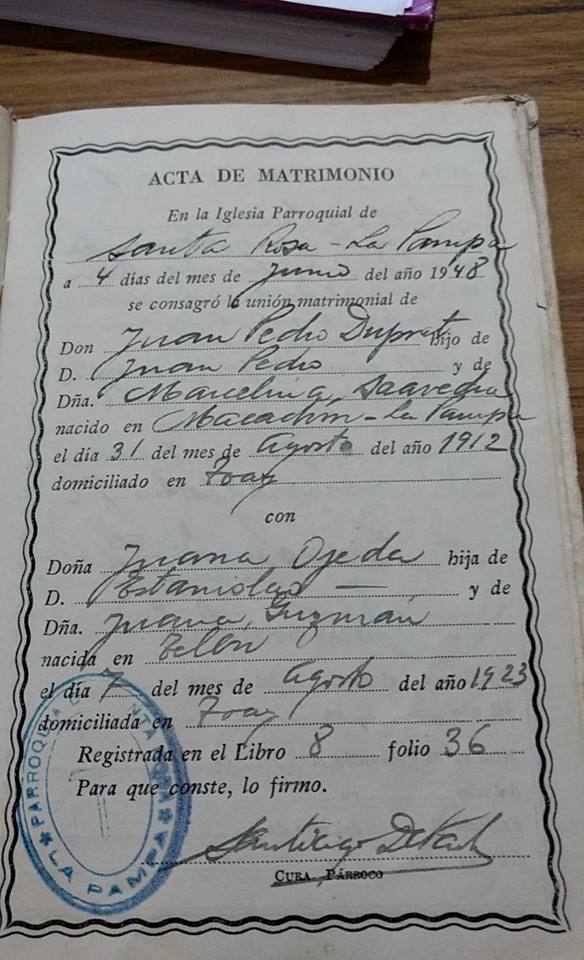 ACTA DE MATRIMONIO
En la Iglesia Parroquial de
Santa Rosa - La Pampa
a 4 días del mes de Junio del año 1948
se consagró la unión matrimonial de
Don Juan Pedro Duprat hijo de
D. Juan Pedro y de
Dña. Marcelina Saavedra
nacido en Macachín - La Pampa
el día 31 del mes de Agosto del año 1912
domiciliado en Toay
con
Doña Juana Ojeda hija de
D. Estanislao — y de
Dña. Juana Guzmán
nacida en Telén
el día 7 del mes de Agosto del año 1923
domiciliada en Toay
Registrada en el Libro 8 folio 36
Para que conste, lo firmo.
Santiago
CURA PÁRROCO
PARROQUIA SANTA ROSA
* LA PAMPA *